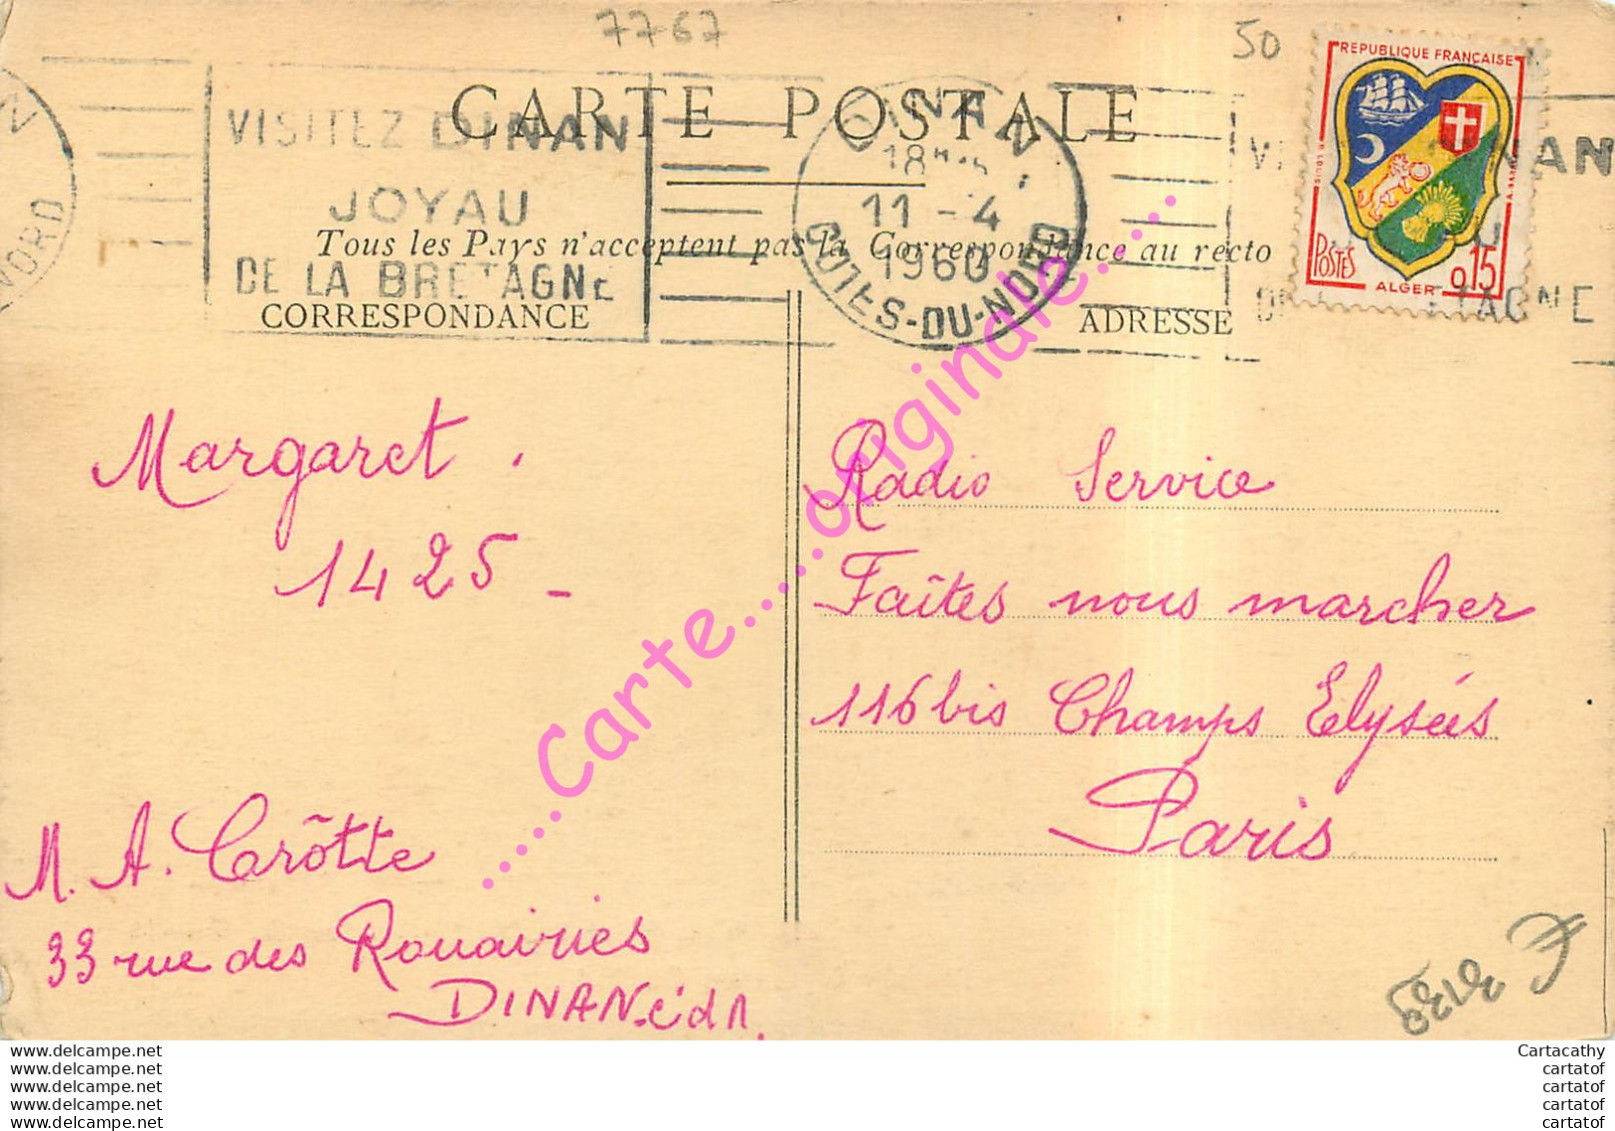 7767
50
CARTE POSTALE
VISITEZ DINAN
JOYAU
DE LA BRETAGNE
DINAN
18H
11 - 4
1960
COTES-DU-NORD
NORD
REPUBLIQUE FRANÇAISE
POSTES
ALGER
0,15
Tous les Pays n'acceptent pas la Correspondance au recto
CORRESPONDANCE
ADRESSE
Margaret.
1425 -
M. A. Crôtte
33 rue des Rouairies
DINAN. c'd n.
Radio Service
Faîtes nous marcher
116 bis Champs Elysées
Paris
.....Carte.....originale.....
www.delcampe.net
www.delcampe.net
www.delcampe.net
www.delcampe.net
www.delcampe.net
Cartacathy
cartatof
cartatof
cartatof
cartatof